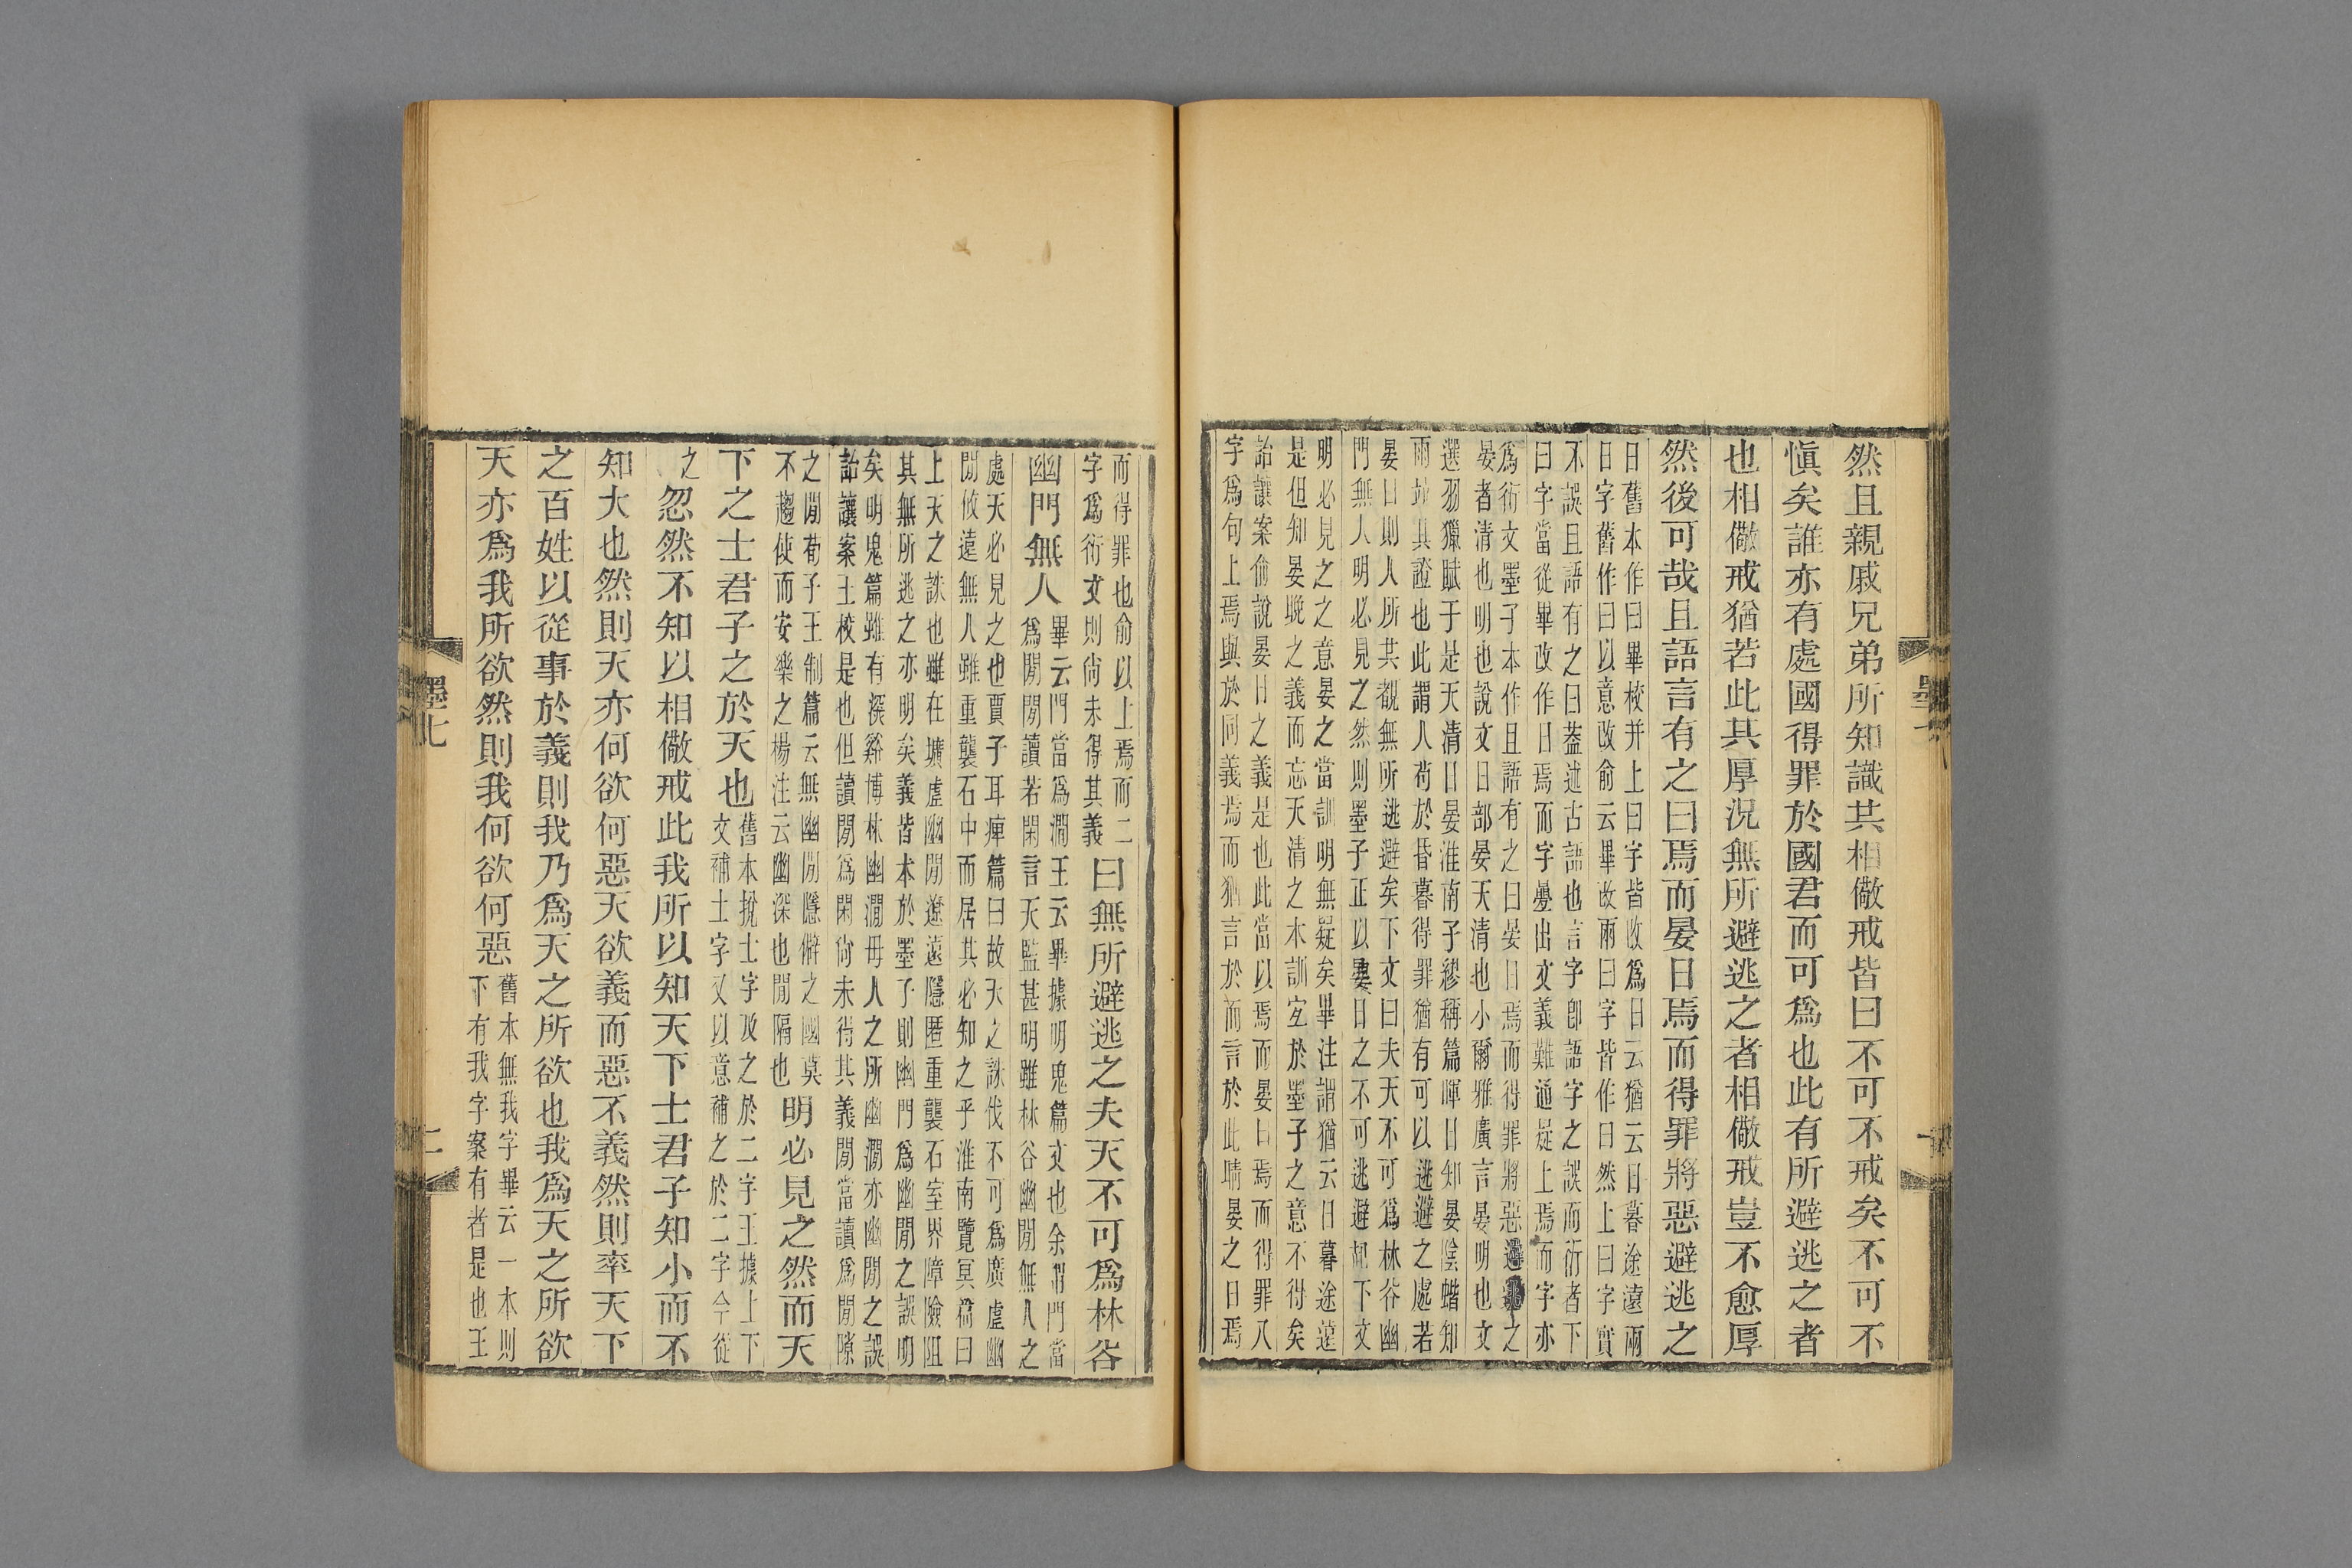 然且親戚兄弟所知識其相儆戒皆曰不可不戒矣不可不
愼矣誰亦有處國得罪於國君而可爲也此有所避逃之者
也相儆戒猶若此其厚況無所避逃之者相儆戒豈不愈厚
然後可哉且語言有之曰焉而晏日焉而得罪將惡避逃之
日舊本作曰畢校并上曰字皆改爲日云猶云日暮途遠兩
日字舊作曰以意改俞云畢改兩曰字皆作日然上曰字實
不誤且語有之曰蓋述古語也言字卽語字之誤而衍者下
曰字當從畢改作日焉而字疊出文義難通疑上焉而字亦
爲衍文墨子本作且語有之曰晏日焉而得罪將惡避逃之
晏者清也明也說文日部晏天清也小爾雅廣言晏明也文
選羽獵賦于是天清日晏淮南子繆稱篇暉日知晏陰蝔知
雨竝其證也此謂人苟於昏暮得罪猶有可以逃避之處若
晏日則人所共覩無所逃避矣下文曰夫天不可爲林谷幽
門無人明必見之然則墨子正以晏日之不可逃避起下文
明必見之之意晏之當訓明無疑矣畢注謂猶云日暮途遠
是但知晏晚之義而忘天清之本訓宜於墨子之意不得矣
詒讓案俞說晏日之義是也此當以焉而晏日焉而得罪八
字爲句上焉與於同義焉而猶言於而言於此晴晏之日焉
而得罪也俞以上焉而二
字爲衍文則尙未得其義
曰無所避逃之夫天不可爲林谷
幽門無人
畢云門當爲澗王云畢據明鬼篇文也余謂門當
爲閒閒讀若閑言天監甚明雖林谷幽閒無人之
處天必見之也賈子耳痺篇曰故天之誅伐不可爲廣虛幽
閒攸遠無人雖重襲石中而居其必知之乎淮南覽冥篇曰
上天之誅也雖在壙虛幽閒遼遠隱匿重襲石室界障險阻
其無所逃之亦明矣義皆本於墨子則幽門爲幽閒之誤明
矣明鬼篇雖有深谿博林幽澗毋人之所幽澗亦幽閒之誤
詒讓案王校是也但讀閒爲閑尙未得其義閒當讀爲閒隙
之閒荀子王制篇云無幽閒隱僻之國莫
不趨使而安樂之楊注云幽深也閒隔也
明必見之然而天
下之士君子之於天也
舊本挩士字及之於二字王據上下
文補士字又以意補之於二字今從
之
忽然不知以相儆戒此我所以知天下士君子知小而不
知大也然則天亦何欲何惡天欲義而惡不義然則率天下
之百姓以從事於義則我乃爲天之所欲也我爲天之所欲
天亦爲我所欲然則我何欲何惡
舊本無我字畢云一本則
下有我字案有者是也王
墨七
二